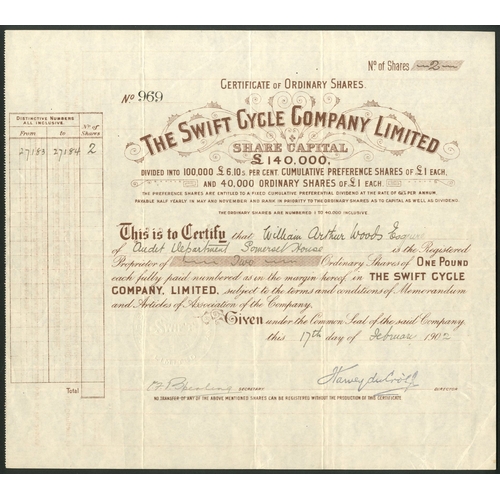 Nº of Shares 2
CERTIFICATE OF ORDINARY SHARES.
Nº 969
THE SWIFT CYCLE COMPANY LIMITED
SHARE CAPITAL
£140,000,
DIVIDED INTO 100,000 £6.10s. PER CENT. CUMULATIVE PREFERENCE SHARES OF £1 EACH,
AND 40,000 ORDINARY SHARES OF £1 EACH.
THE PREFERENCE SHARES ARE ENTITLED TO A FIXED CUMULATIVE PREFERENTIAL DIVIDEND AT THE RATE OF 6½% PER ANNUM.
PAYABLE HALF YEARLY IN MAY AND NOVEMBER AND RANK IN PRIORITY TO THE ORDINARY SHARES AS TO CAPITAL AS WELL AS DIVIDEND.
THE ORDINARY SHARES ARE NUMBERED 1 TO 40,000 INCLUSIVE
DISTINCTIVE NUMBERS ALL INCLUSIVE.
From to Nº of Shares
27183 27184 2
Total
This is to Certify that William Arthur Woods Esquire
of Audit Department Somerset House is the Registered
Proprietor of Two Ordinary Shares of ONE POUND
each fully paid numbered as in the margin hereof in THE SWIFT CYCLE
COMPANY, LIMITED, subject to the terms and conditions of Memorandum
and Articles of Association of the Company.
Given under the Common Seal of the said Company
this 17th day of February 1902
SECRETARY
Harvey du Cros Jr
DIRECTOR
NO TRANSFER OF ANY OF THE ABOVE MENTIONED SHARES CAN BE REGISTERED WITHOUT THE PRODUCTION OF THIS CERTIFICATE.